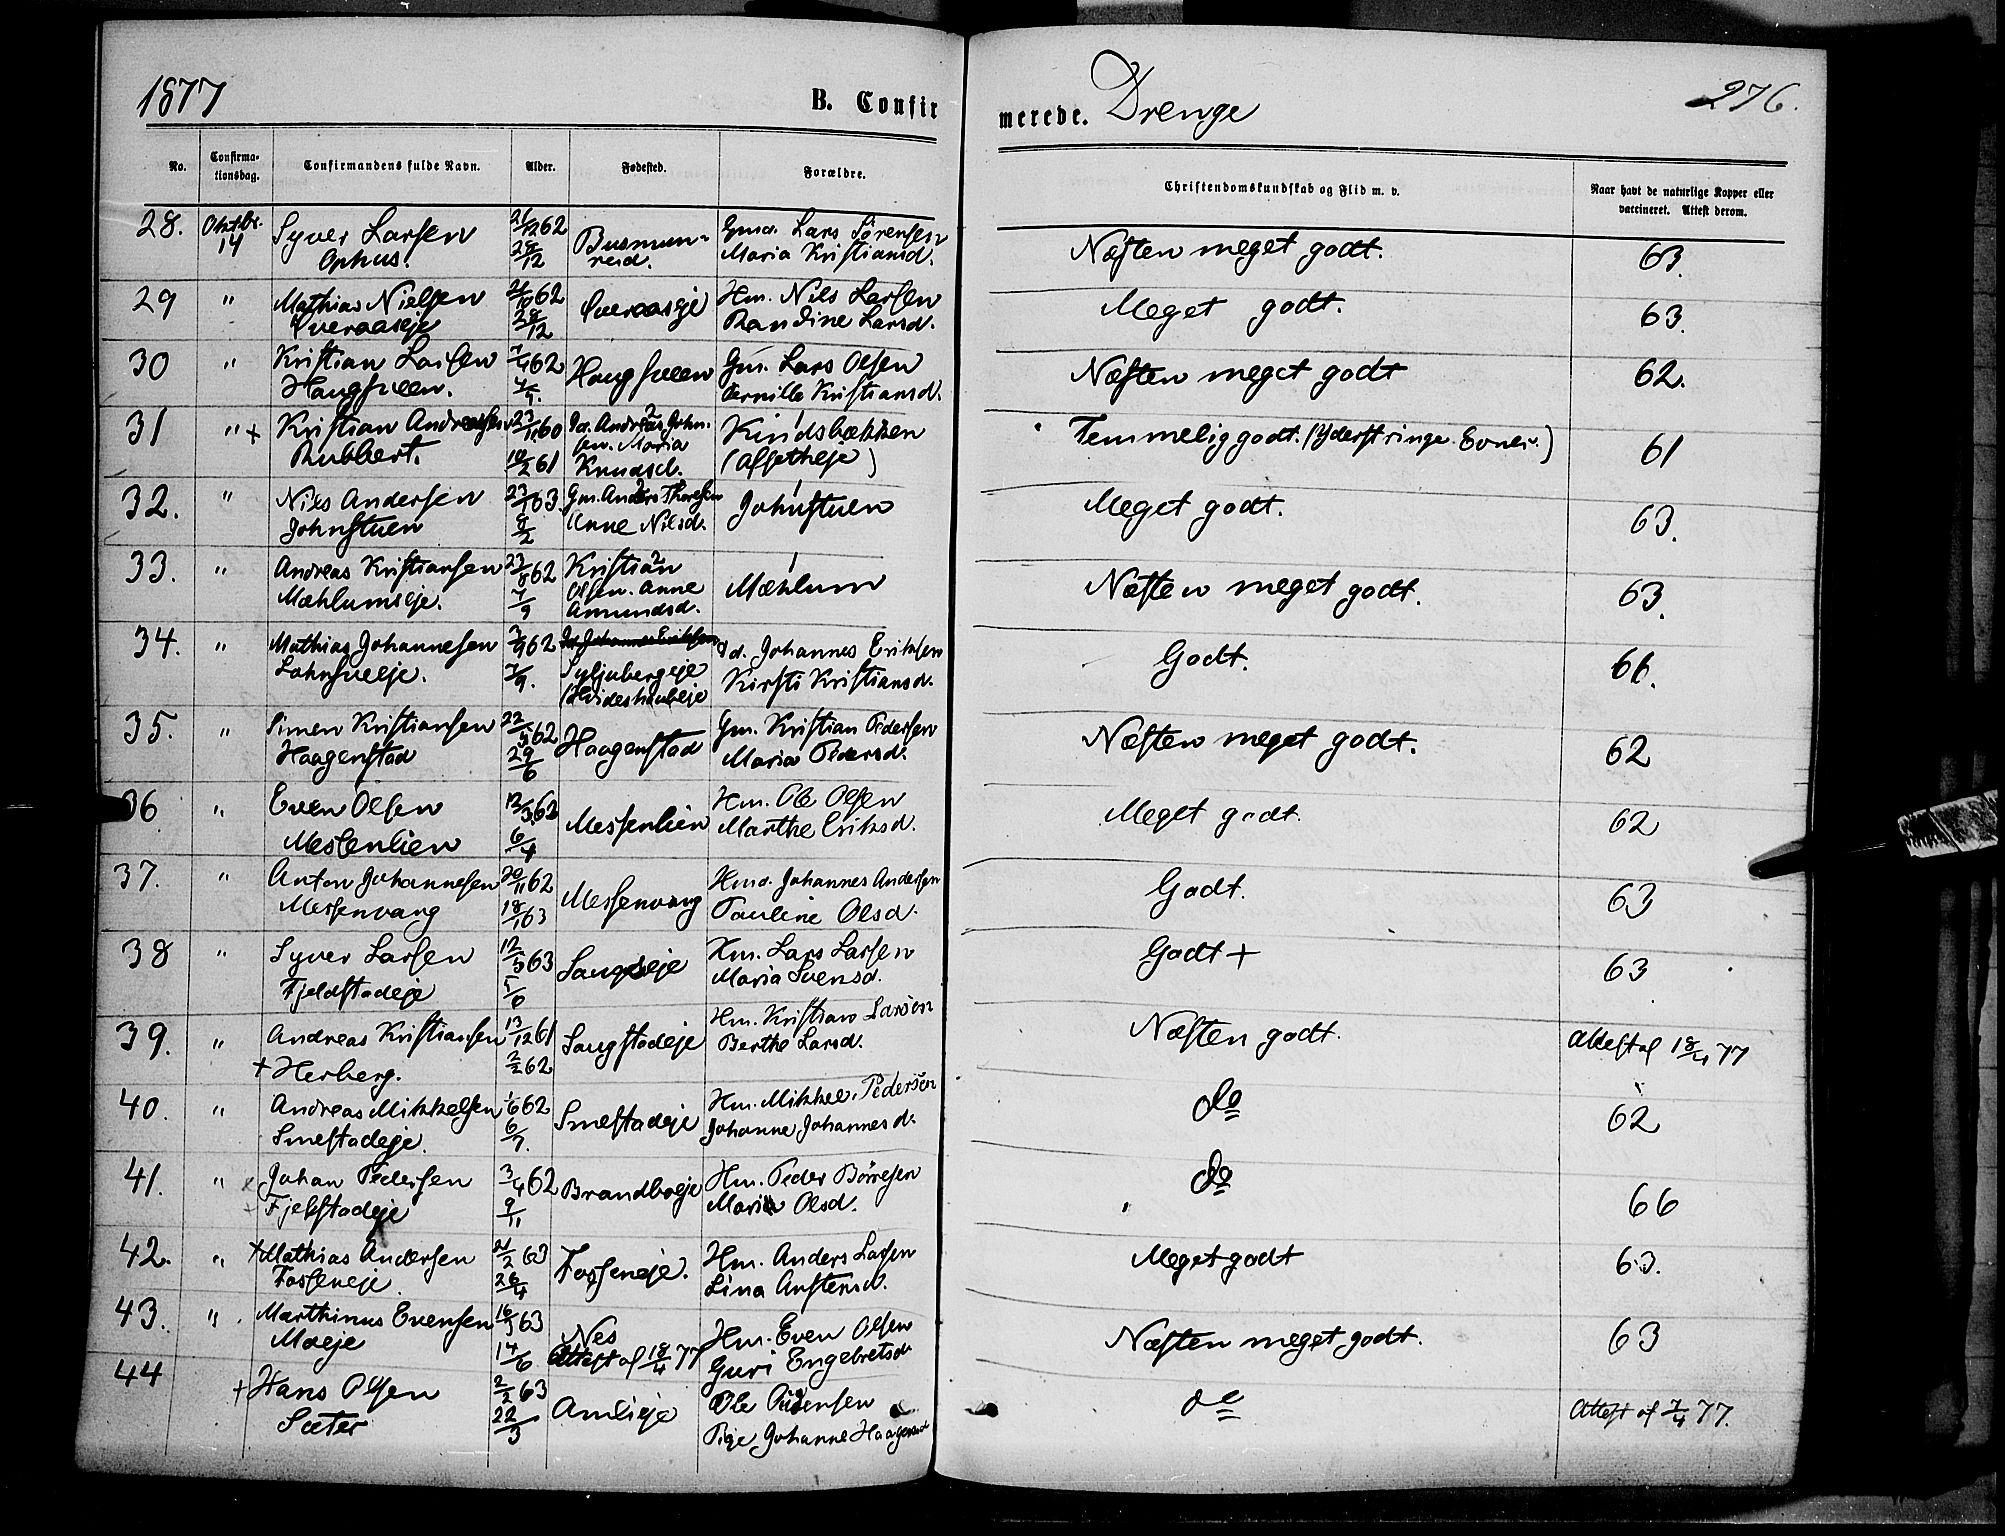 1877 B. Confirmerede. Drenge 276.
No. Confirmationsdag. Confirmandens fulde Navn. Alder. Fødested. Forældre. Christendomskundskab og Flid m. v. Naar havt de naturlige Kopper eller vaccineret. Attest derom.
28. Oktbr. 14 Syver Larsen 62 Gmd. Lars Sörensen Næsten meget godt. 63.
Ophus. 28/12 Maria Kristiansd.
29 " Mathias Nielsen 62 Överaaseje Hm. Nils Larsen Meget godt. 63.
Överaaseje 28/12 Randine Larsd.
30 " Kristian Larsen 62 Haugsveen Gm. Lars Olsen Næsten meget godt 62.
Haugsveen. Pernille Kristiansd.
31 " + Kristian Andreassen 23/11 60 Id. Andreas Johnsen. Maria Knudsd. Kindsbækken Temmelig godt. (Yderst ringe Evner.) 61
Rubbert. 10/2 61
32. " Nils Andersen 23/1 63. Gm. Anders Thoresen Johnstuen Meget godt. 63.
Johnstuen 8/2 Anne Nilsd.
33. " Andreas Kristiansen 23/8 62 Kristian Mæhlum Næsten meget godt. 63.
Mæhlumseje. 7/9 Olsen. Anne Amundsd.
34. " Mathias Johannesen 62 Id. Johannes Eriksen Godt. 66.
7/9. Syljubergeje Kirsti Kristiansd.
35. " Simen Kristiansen 22/5 62 Haagenstad Gm. Kristian Pedersen Næsten meget godt. 62
Haagenstad 29/6 Maria Pedersd.
36 " Even Olsen Messenlien Hm. Ole Olsen Meget godt. 62
Messenlien 6/4 Marthe Eriksd.
37. " Anton Johannesen 20/11 62 Messenvang Hmd. Johannes Andersen Godt. 63
Messenvang 18/1 63 Pauline Olsd.
38 " Syver Larsen 12/5 63 Hm. Lars Larsen Godt + 63
Fjeldstadeje Maria Svensd.
39. " Andreas Kristiansen 13/12 61 Saugstadeje Hm. Kristian Larsen Næsten godt. Attest af 18/4 77
+ Herberg. 2/2 62 Berthe Larsd.
40. " Andreas Mikkelsen 1/6 62 Smestadeje Hm. Mikkel Pedersen do 62
Smestadeje. 6/7. Johanne Johannesd.
41. " Johan Pedersen 3/4 62 Brandboeje Hm. Peder Börresen do 66
Fjelstadeje 9/11 Maria Olsd.
42. " + Mathias Andersen 63 Fosseneje. Hm. Anders Larsen Meget godt 63.
Fosseneje 26/4 Lina Austensd.
43. " Marthinus Evensen 16/3 63 Nes Hm. Even Olsen Næsten meget godt. 63
Moeje 14/6 Attest af 18/4 77 Guri Engebretsd.
44 + Hans Olsen 2/2 63 Amlieje Ole Pedersen do Attest af 7/4 77.
Sæter 22/3 Pige Johanne Haagensd